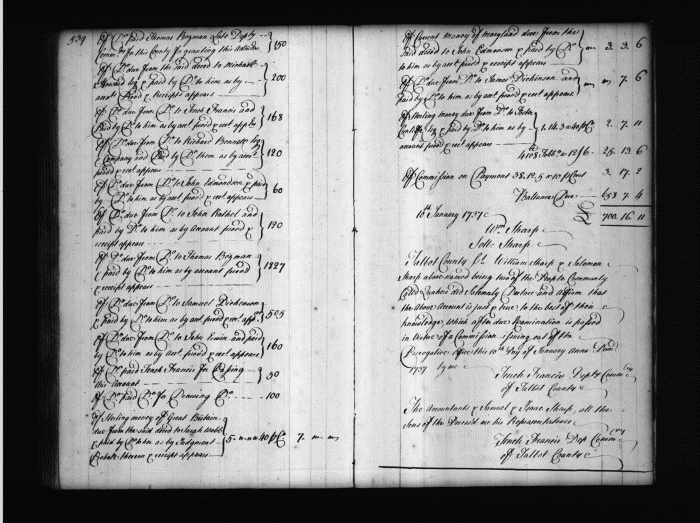 539
Of Do. paid Thomas Bozman Late Depty
Comry. in this County for granting this Admn. } 150
Of Do. due from the said deced to Michael
Howard & paid by Do. to him as by
and receipt appears } 200
Of Do. due from Do. to Tench Francis and
Paid by Do. to him as by acct. proved & rect. appears } 168
Of Do. due from Do. to Richard Bennett Esqr.
& Company and Paid by Do. to them as by acct.
proved & rect. appears } 120
Of Do. due from Do. to John Edmondson & paid
by Do. to him as by acct. proved & rect. appears } 60
Of Do. due from Do. to John and
paid by Do. to him as by Account proved &
receipt appears } 120
Of Do. due from Do. to Thomas Bozman
& paid by Do. to him as by Account proved
& receipt appears } 1827
Of Do. due from Do. to Samuel Dickinson
& paid by Do. to him as by acct. proved & rect. appears } 505
Of Do. due from Do. to John and paid
by Do. to him as by Acct. proved & rect. appears } 160
Of Do. paid Tench Francis for Passing
this Account } 50
Of Do. paid Do. for Drawing Do. 100
Of Sterling money of Great Britain
due from the said deced to
& paid by Do. to him as by Judgment
thereon & receipt appears } 5 . . 40 p Ct. 7 . .
Of Current money of Maryland due from the
said deced to John Edmondson & paid by Do.
to him as by acct. proved & receipt appears } 3. 3. 6
Of Do. due from Do. to James Dickinson and
paid by Do. to him as by acct. proved & rect. appears } 7. 6
Of Sterling money due from Do. to John
& paid by Do. to him as by
account proved & rect. appears } 1. 14. 3 a 40 p Ct. 2. 7. 11
4108 Tobo. a 12/6 25. 13. 6
Of Commission on Payment 38. 12. 5 a 10 p Cent 3. 17. 2
Ballance Due 658. 7. 4
700. 16. 11
10th January 1737
Wm. Sharp
Soll: Sharp
Talbot County Ss. William Sharp & Solomon
Sharp above named being two of the People Commonly
Called Quakers did Solemnly Declare and affirm that
the Above Account is just & true to the best of their
knowledge, which after due Examination is passed
in Virtue of a Commission issuing out of the
Prerogative Office this 10th Day of January Anno Domi.
1737 by me
Tench Francis Depty Commry.
of Talbot County
The Accountants & Samuel & Isaac Sharp, all the
Sons of the Deceased are his Representatives
Tench Francis Dep Commry.
of Talbot County